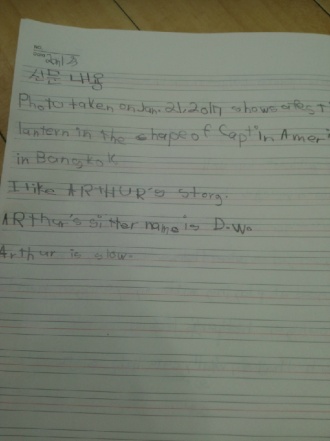 신문 내용
Photo taken on Jan. 21. 2017 shows a
lantern in the shape of Captin Ameri
in Bangkok
I like ARTHUR's story.
ARthur's sitter name is D.W.
Arthur is slow.